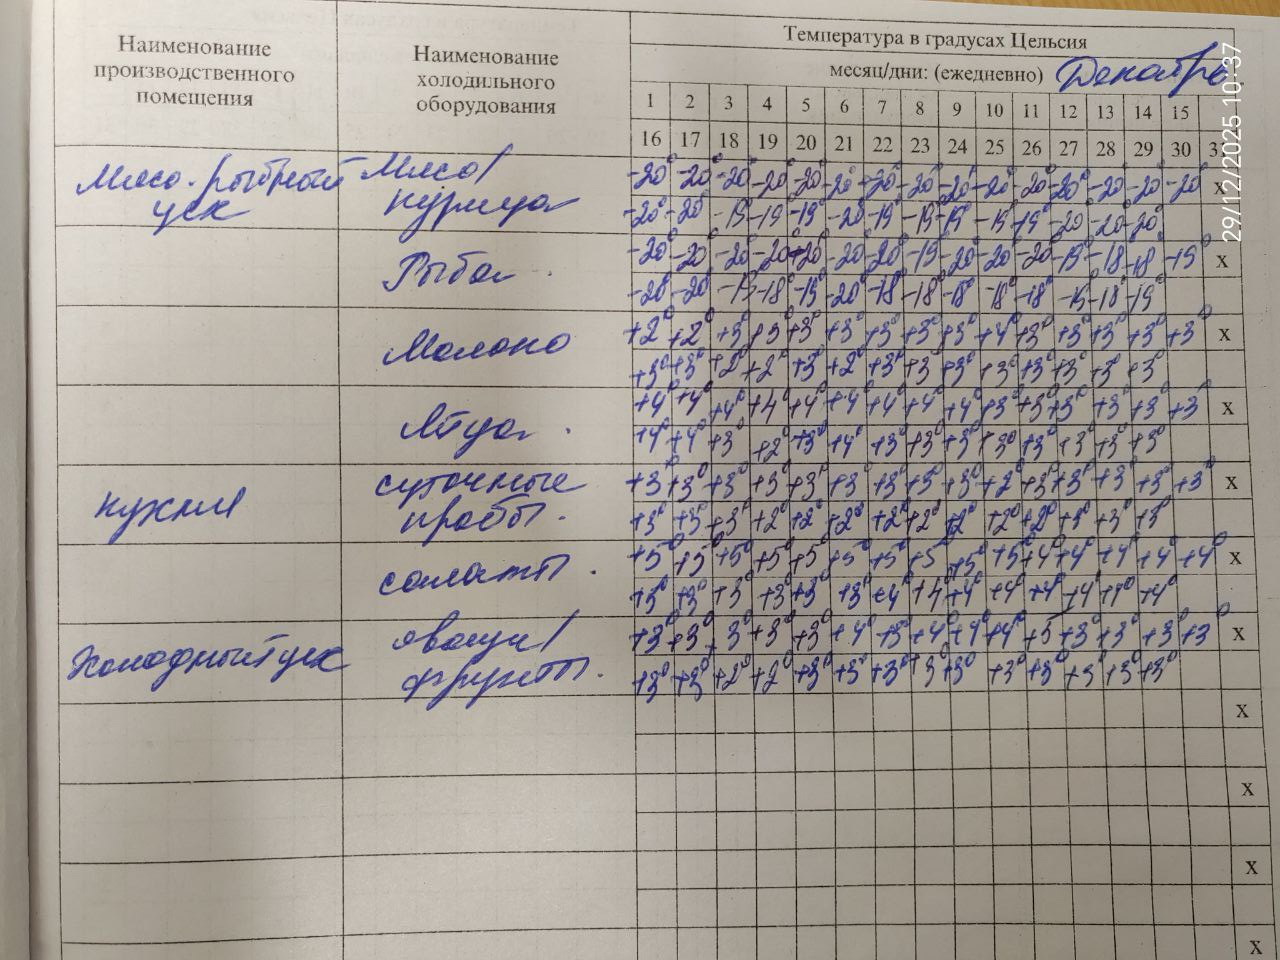 Наименование производственного помещения
Наименование холодильного оборудования
Температура в градусах Цельсия
месяц/дни: (ежедневно) Декабрь
1 2 3 4 5 6 7 8 9 10 11 12 13 14 15
16 17 18 19 20 21 22 23 24 25 26 27 28 29 30 3
Мясо-рыбный цех
Мясо/курица
-20° -20° -20° -20 -20° -20° -20° -20° -20° -20° -20° -20° -20 -20 -20° x
-20° -20° -19 -19 -19° -20 -19° -19 -19° -19 -19° -20 -20 -20°
Рыба
-20° -20 -20 -20 -20° -20 -20° -19 -20 -20 -20° -19 -18 -18 -19° x
-20° -20° -19 -18 -19 -20° -18 -18° -18° -18° -18° -19 -18 -19°
Молоко
+2° +2° +3° +3° +3° +3° +3° +3° +3° +4° +3° +3 +3° +3° +3° x
+3° +3° +2° +2° +3° +2° +3° +3 +3° +3° +3 +3° +3° +3°
Яйца
+4° +4° +4° +4 +4° +4° +4° +4° +4° +3° +3 +3° +3° +3° +3° x
+4° +4° +3° +2° +3° +4° +3° +3° +3° +3° +3° +3° +3° +3°
кухня
суточные пробы.
+3° +3° +3° +3° +3° +3 +3° +3° +3° +2° +3° +3° +3° +3° +3° x
+3° +3° +3° +2° +2° +2° +2° +2° +2° +2° +2° +3° +3° +3°
салаты.
+5° +5° +5° +5° +5° +5° +5° +5° +5° +5° +4° +4° +4° +4° +4° x
+3° +3° +3 +3° +3 +3° +4° +4 +4° +4° +4° +4° +4° +4°
Холодный цех
овощи/фрукты.
+3° +3° 3° +3° +3° +4° +3° +4° +4° +4° +5 +3° +3° +3° +3° x
+3° +3° +2° +2° +3° +3° +3° +3° +3° +3° +3° +3 +3° +3°
x
x
x
x
29/12/2025 10:37